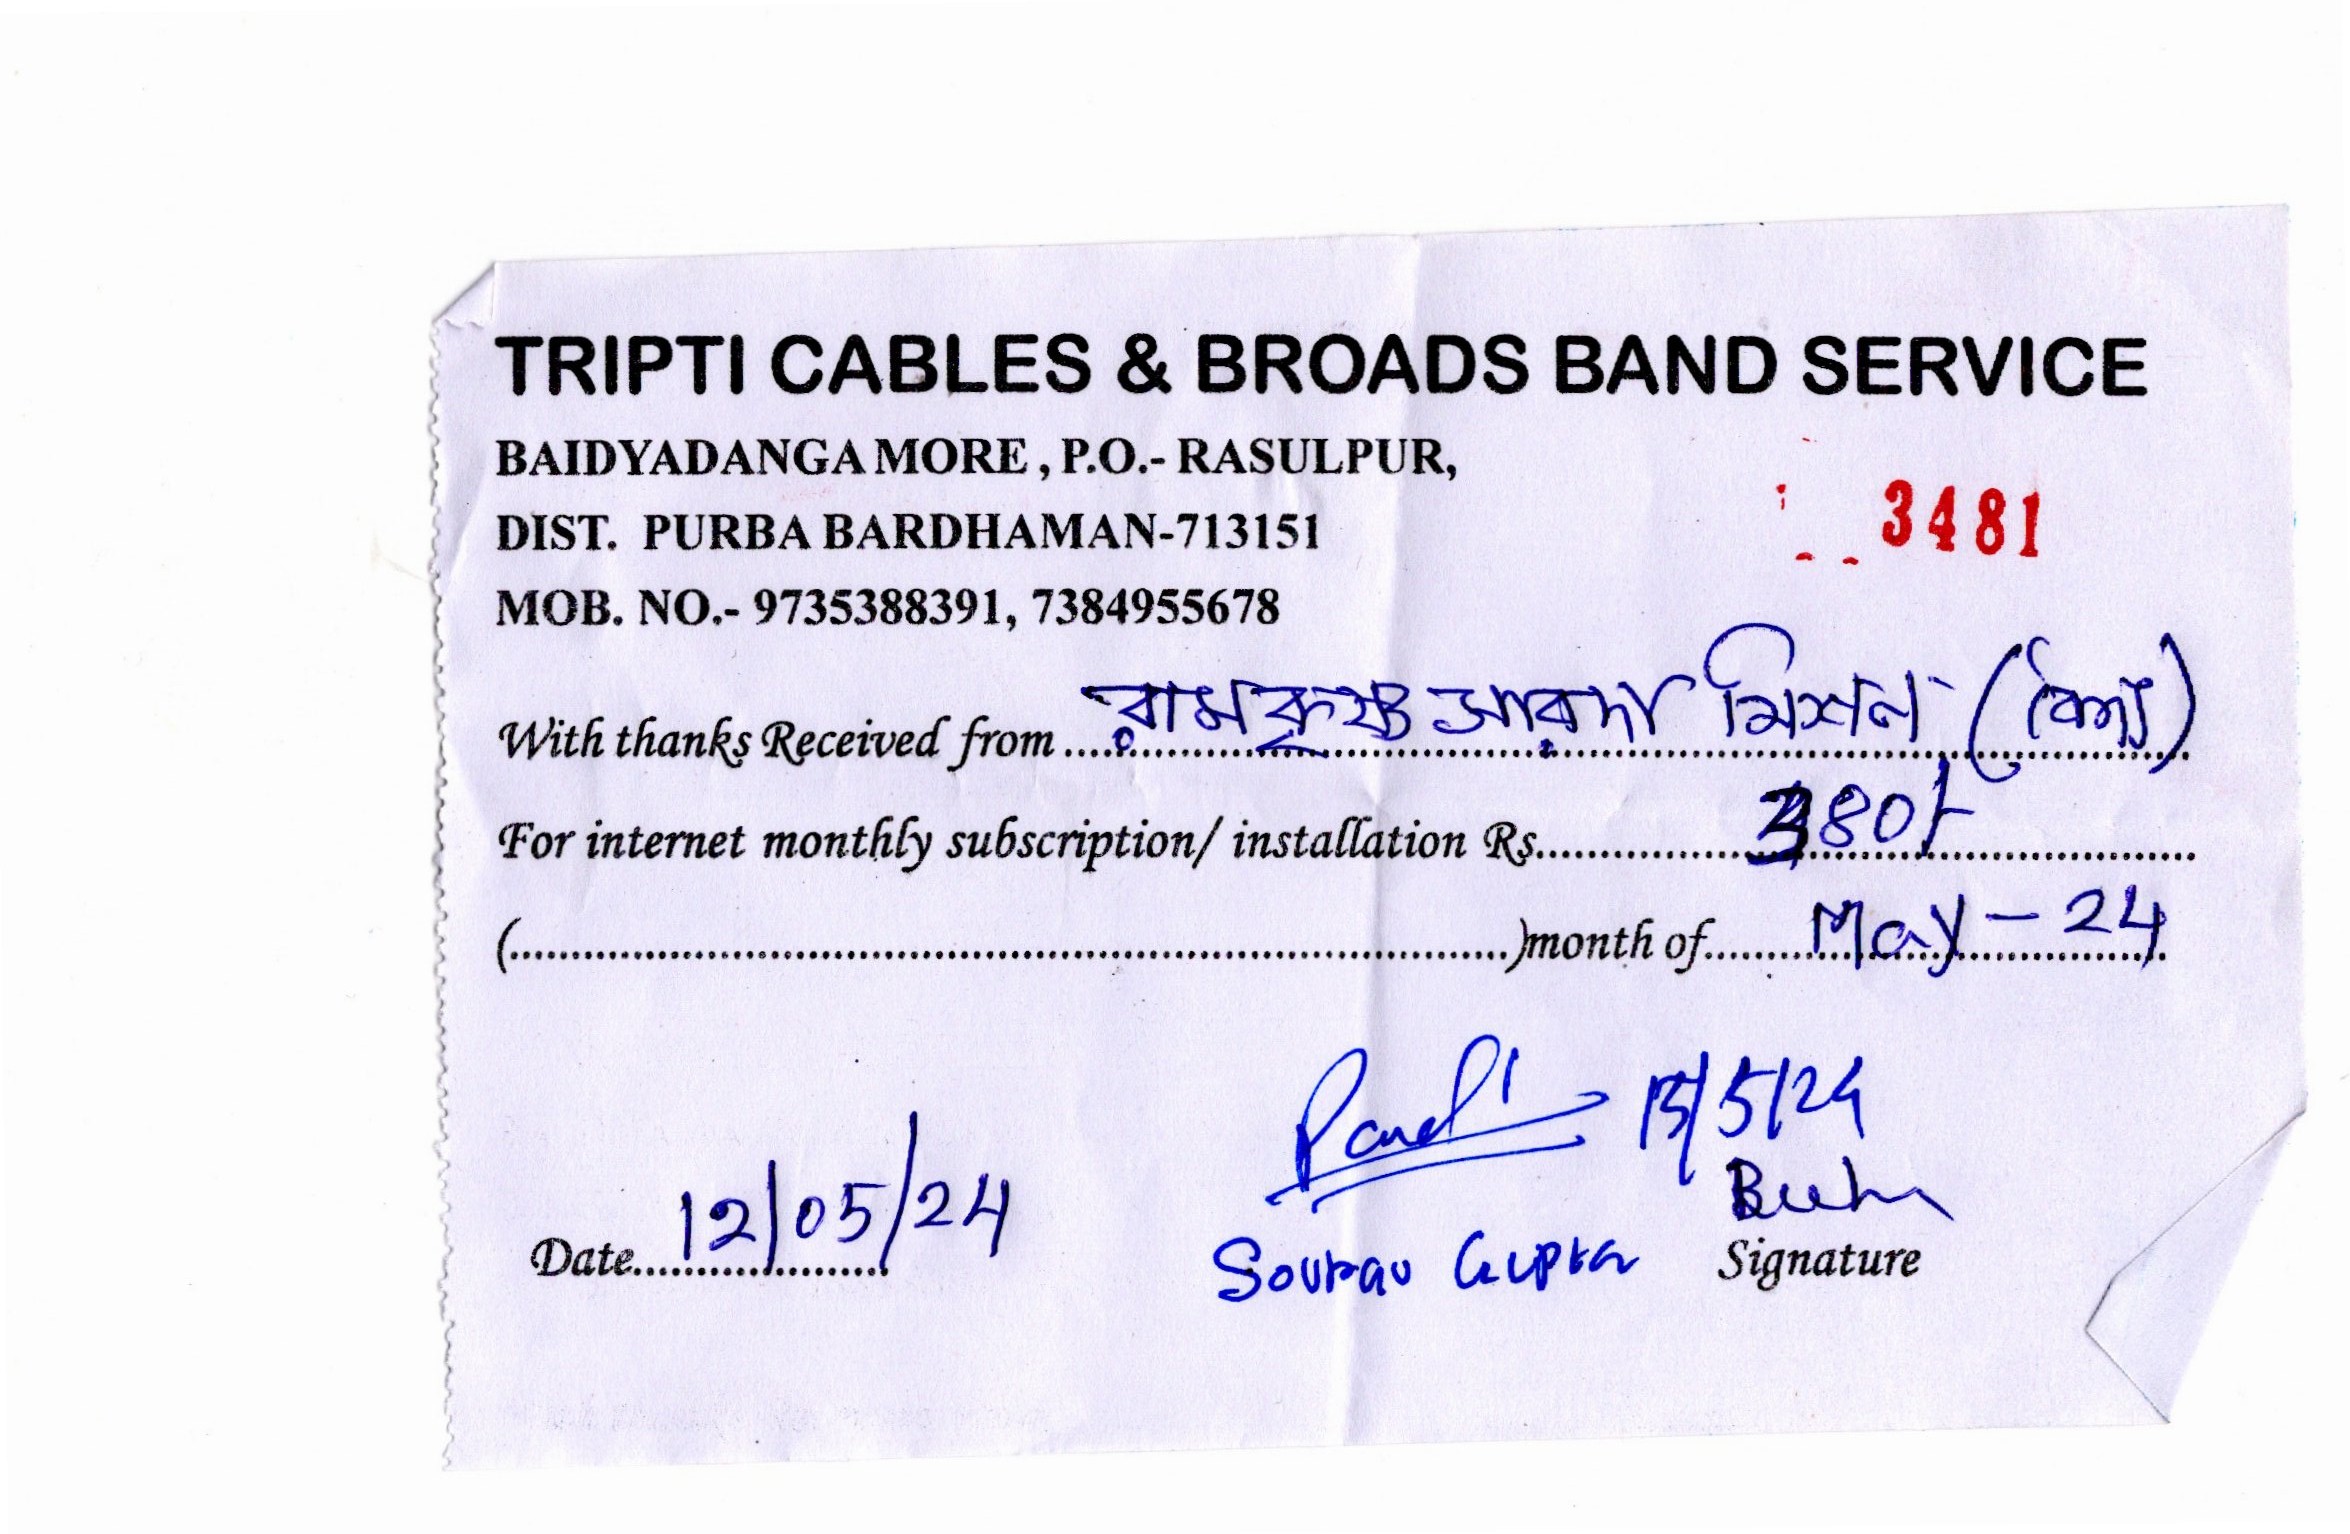 TRIPTI CABLES & BROADS BAND SERVICE
BAIDYADANGA MORE, P.O.- RASULPUR,
DIST. PURBA BARDHAMAN-713151
3481
MOB. NO.- 9735388391, 7384955678
With thanks Received from রামকৃষ্ণ সারদা মিশন
For internet monthly subscription/ installation Rs. 380/-
( )month of May - 24
15/5/24
Date 12/05/24
Sourav Gupta Signature